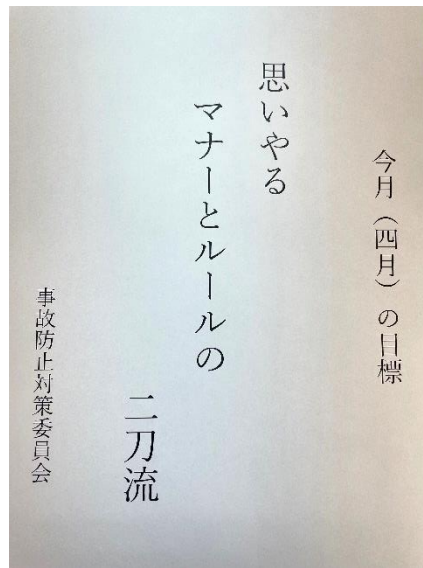 今月（四月）の目標
思いやる
マナーとルールの
二刀流
事故防止対策委員会